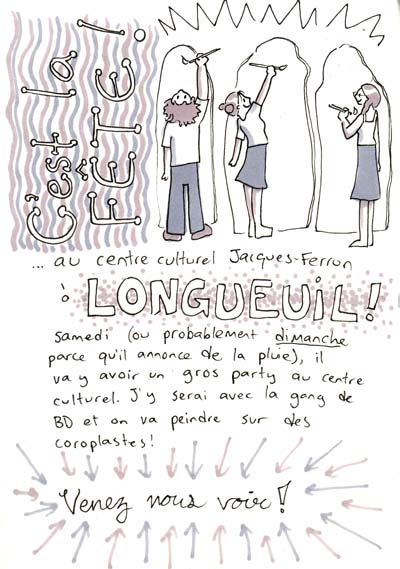 C'est la
FÊTE!
... au centre culturel Jacques-Ferron
à LONGUEUIL!
samedi (ou probablement dimanche
parce qu'il annonce de la pluie), il
va y avoir un gros party au centre
culturel. J'y serai avec la gang de
BD et on va peindre sur des
coroplastes!
Venez nous voir!